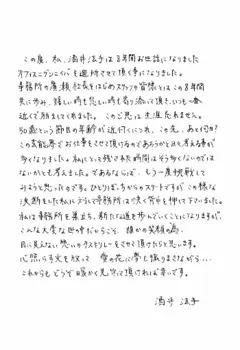 この度、私、酒井法子は8年間お世話になりました
オフィスニグンニイバを退所させて頂く事になりました。
事務所の廣瀬社長をはじめスタッフの皆様とはこの8年間
共に歩み、嬉しい時も悲しい時も寄り添って頂き、いつも一番
近くで励ましてくれました。このご恩は生涯忘れません。
50歳という節目の年齢が近付くにつれ、この先、あと何年?
この芸能界でお仕事をさせて頂けるのであろうかと日々考える事が
多くなりました。私にとって残された時間はそう多くないのでは
ないかとも考えました。であるならば、もう一度挑戦して
みようと思ったのです。ひとりぼっちからのスタートですが、この様な
決断をした私に対して事務所は快く背中を押して下さいました。
私は事務所を巣立ち、新たな道を歩んでいくことになりますが、
こんな大変な世の中だからこそ、誰かの笑顔の為、
目に見えない想いのタスキリレーをさせて頂けたらと思います。
心照らす光を放って 愛の花に夢を織りまぜながら…
これからもどうぞ暖かく見守って頂ければ幸いです。
酒井 法子